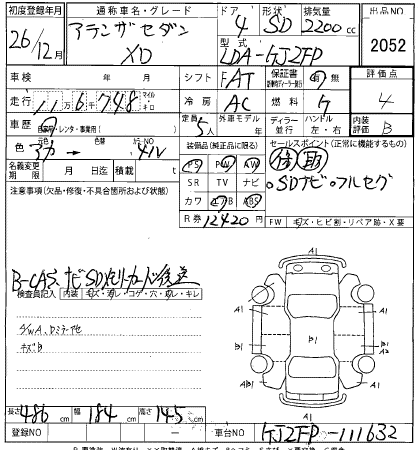 初度登録年月 通称車名・グレード ドア 形状 排気量 出品NO
26/12月 アテンザセダン XD 4 SD 2200cc 2052
型式 LDA-GJ2FP
車検 年 月 シフト FAT 保証書 有 無 評価点
走行 11万6千748 マイル キロ 冷房 AC 燃料 ケ 4
車歴 自家用・レンタ・事業用( ) 定員 5人 外車モデル 年 ディーラー 並行 ハンドル 左・右 内装評価 B
色 アカ → 色替 カラーNO 41V 装備品(純正品に限る) セールスポイント(正常に機能するもの)
名義変更期限 月 日迄 積載 t PS PW AW
注意事項(欠品・修復・不具合箇所および状態) SR TV ナビ ・SDナビ・フルセグ
カワ エアB ABS
R券 12420円 FW キズ・ヒビ割・リペア跡・X要
B-CAS、ナビSDメモリーカード後送
検査員記入 内装 キズ・汚レ・コゲ・穴・ヌレ・キレ
キズB
A1
A1 A1
A1
B1 A B1 B1
A2
A1 A1
A1
長さ 486cm 幅 184cm 高さ 145cm
登録NO — 車台NO GJ2FP-111632